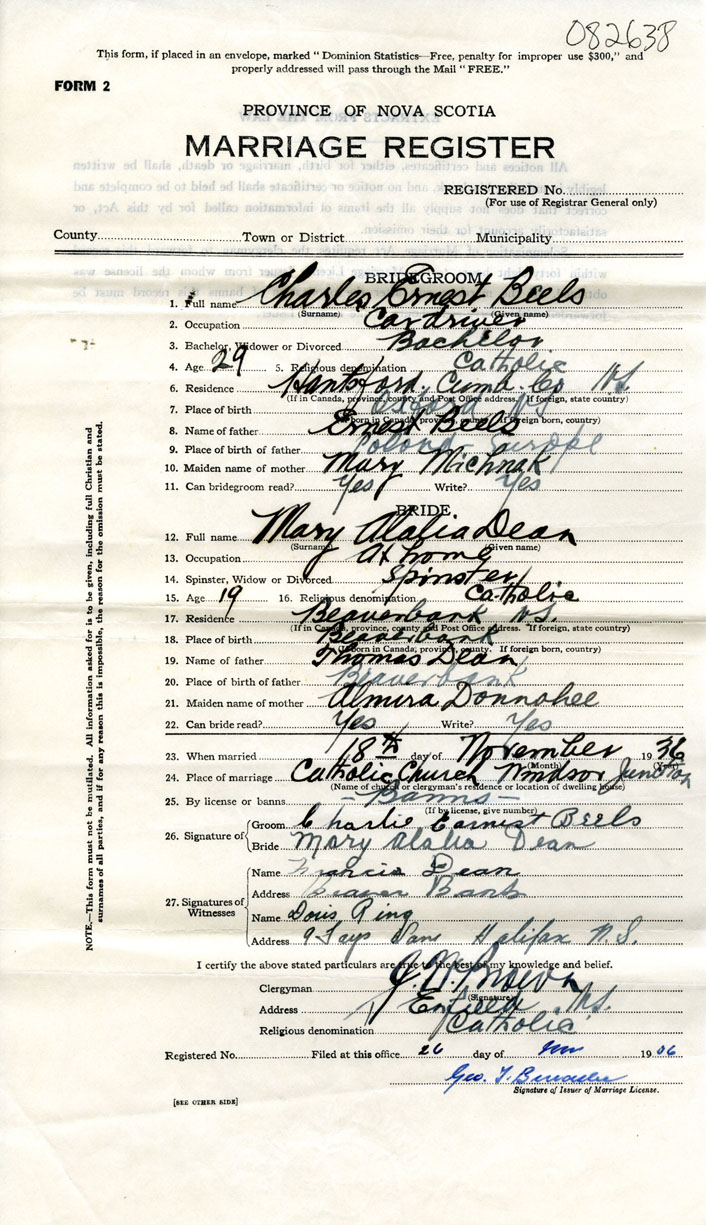 082638
This form, if placed in an envelope, marked "Dominion Statistics—Free, penalty for improper use $300," and
properly addressed will pass through the Mail "FREE."
FORM 2
PROVINCE OF NOVA SCOTIA
MARRIAGE REGISTER
REGISTERED No.
(For use of Registrar General only)
County Town or District Municipality
BRIDEGROOM
1. Full name Charles Ernest Beels
(Surname) (Given name)
2. Occupation Car driver
3. Bachelor, Widower or Divorced Bachelor
4. Age 29 5. Religious denomination Catholic
6. Residence Hantsford. Cumd. Co N.S.
(If in Canada, province, county and Post Office address. If foreign, state country)
7. Place of birth N.S.
(If born in Canada, province, county. If foreign born, country)
8. Name of father Ernest Beels
9. Place of birth of father Poland Europe
10. Maiden name of mother Mary Michnak
11. Can bridegroom read? Yes Write? Yes
BRIDE
12. Full name Mary Alalia Dean
(Surname) (Given name)
13. Occupation At home
14. Spinster, Widow or Divorced Spinster
15. Age 19 16. Religious denomination Catholic
17. Residence Beaverbank N.S.
(If in Canada, province, county and Post Office address. If foreign, state country)
18. Place of birth Beaverbank
(If born in Canada, province, county. If foreign born, country)
19. Name of father Thomas Dean
20. Place of birth of father Beaverbank
21. Maiden name of mother Almira Donnahee
22. Can bride read? Yes Write? Yes
23. When married 18th day of November 1936
(Month) (Year)
24. Place of marriage Catholic Church Windsor Junction
(Name of church or clergyman's residence or location of dwelling house)
25. By license or banns - Banns -
(If by license, give number)
26. Signature of
Groom Charlie Earnest Beels
Bride Mary Alalia Dean
27. Signatures of Witnesses
Name Francis Dean
Address Beaver Bank
Name Doris Ring
Address 9 Jays Lane Halifax N.S.
I certify the above stated particulars are true to the best of my knowledge and belief.
Clergyman J. N. Brown
(Signature)
Address Enfield N.S.
Religious denomination Catholic
Registered No. Filed at this office 26 day of Nov 1936
Geo. T.
Signature of Issuer of Marriage License.
[SEE OTHER SIDE]
NOTE.—This form must not be mutilated. All information asked for is to be given, including full Christian and
surnames of all parties, and if for any reason this is impossible, the reason for the omission must be stated.